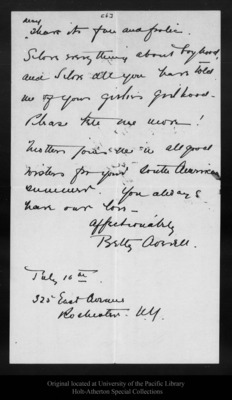 may
share its fun and frolic.
I love everything about boyhood
and I love all you have told
me of your girls girlhood.
Please tell me more!
Mother joins me in all good
wishes for your South American
summer. You always
have our love -
Affectionately
Betty
July 10th
325 East Avenue
Rochester. N.Y.
Original located at University of the Pacific Library
Holt-Atherton Special Collections